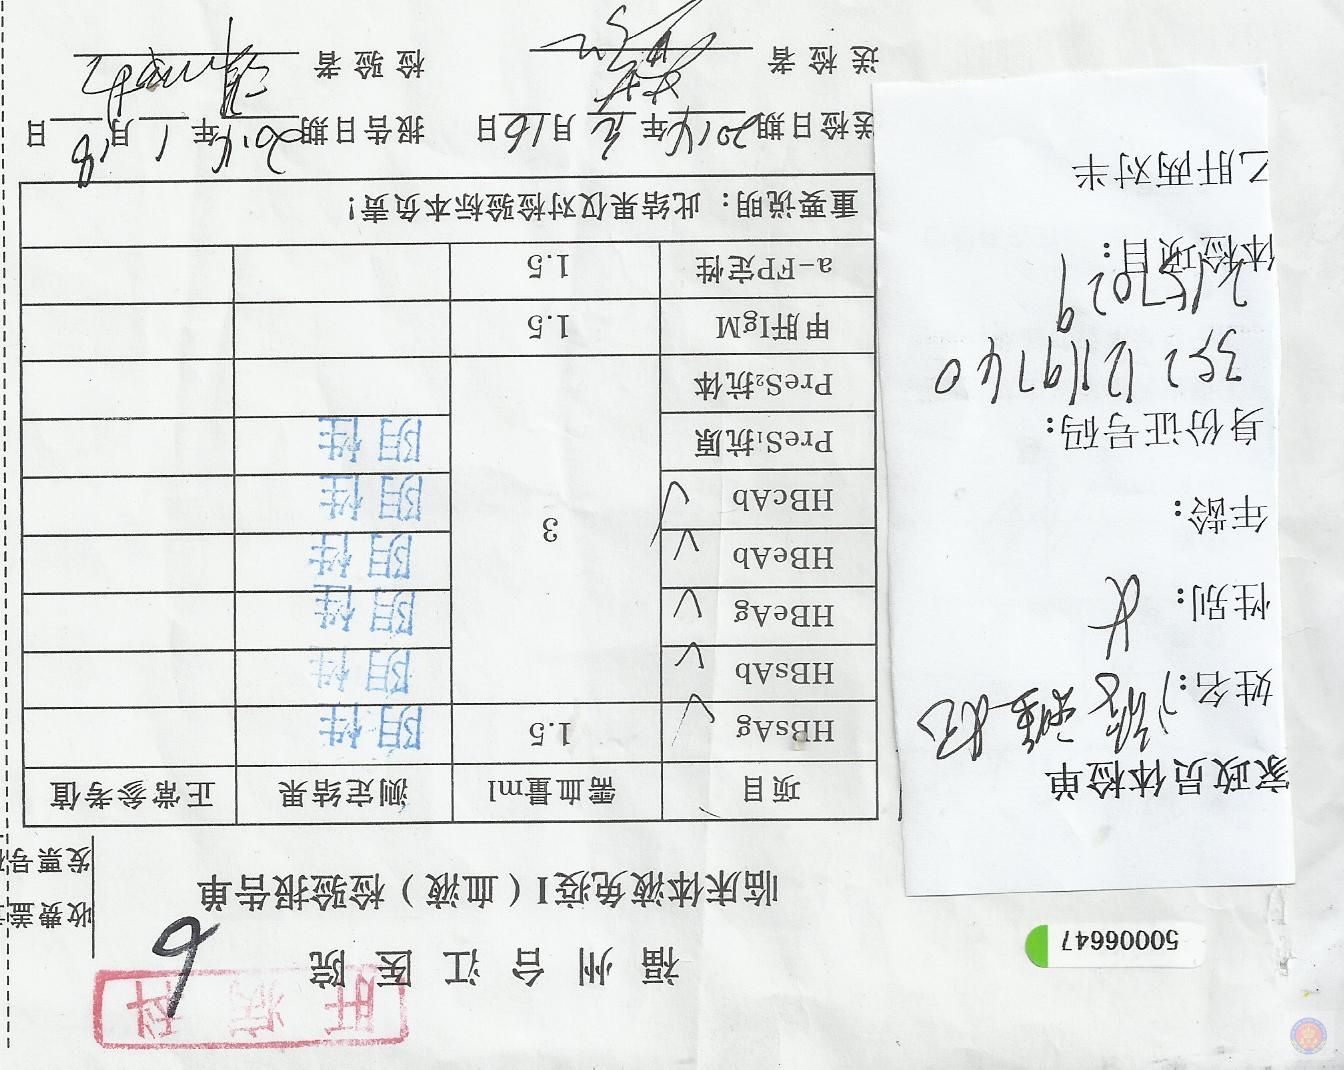 50006647
肝病科
6
福州台江医院
临床体液免疫I（血液）检验报告单
收费盖
发票号码
项目 需血量ml 测定结果 正常参考值
HBsAg 1.5 阴性
HBsAb 3 阴性
HBeAg 阴性
HBeAb 阴性
HBcAb 阴性
PreS₁抗原 阴性
PreS₂抗体
甲肝IgM 1.5
a-FP定性 1.5
重要说明：此结果仅对检验标本负责！
送检日期2014年元月16日 报告日期2014年1月18日
送检者 检验者
家政员体检单
姓名：
性别：女
年龄：
身份证号码：
35212119740
2157029
体检项目：
乙肝两对半